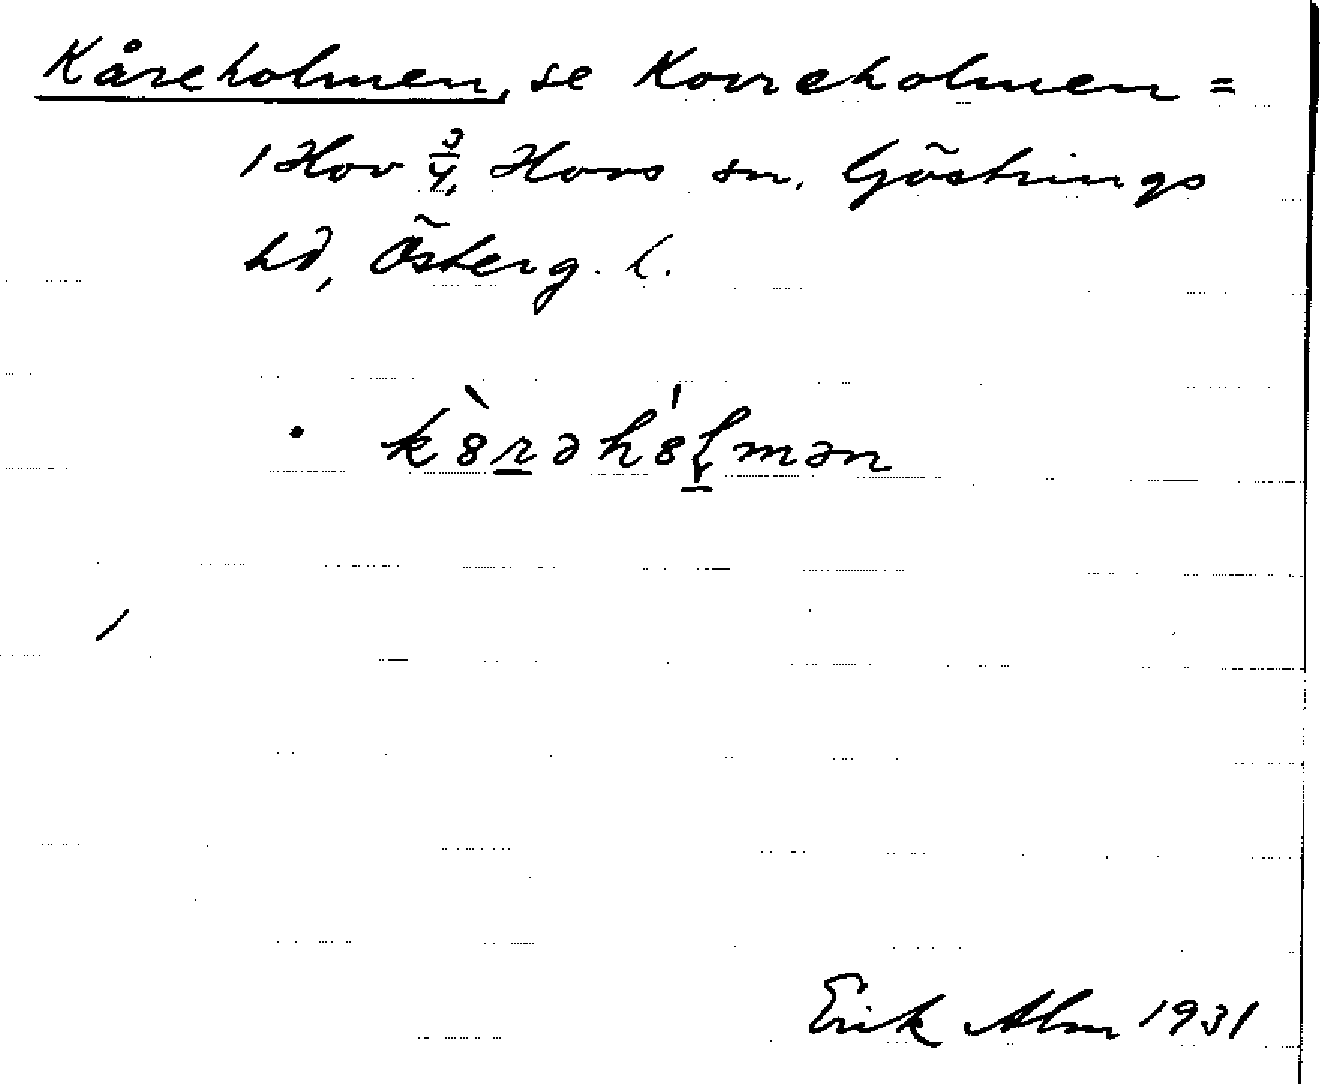 Kåreholmen, se Korreholmen =
1 Hov 3/4, Hovs sn. Göstrings
hd, Österg. l.
kò̀rəhólmən
Erik Alm 1931